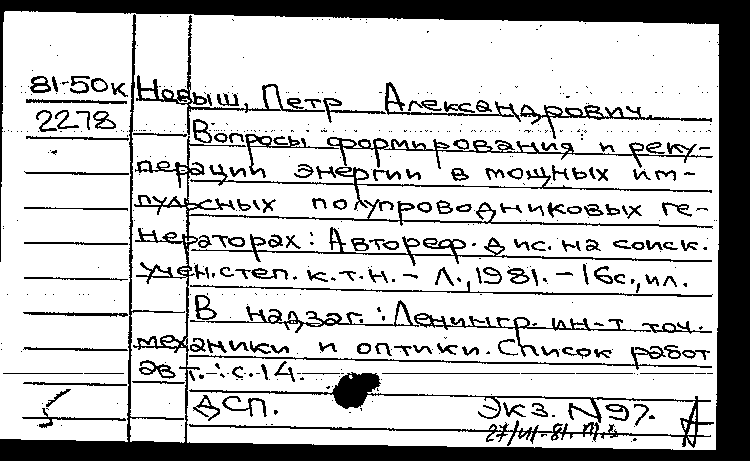 81-50к Новыш, Петр Александрович.
2278
Вопросы формирования и реку-
перации энергии в мощных им-
пульсных полупроводниковых ге-
нераторах: Автореф. дис. на соиск.
учен. степ. к.т.н. - Л., 1981. - 16с., ил.
В надзаг.: Ленингр. ин-т точ.
механики и оптики. Список работ
авт.: с. 14.
ДСП. Экз. N 97.
27/VII-81.